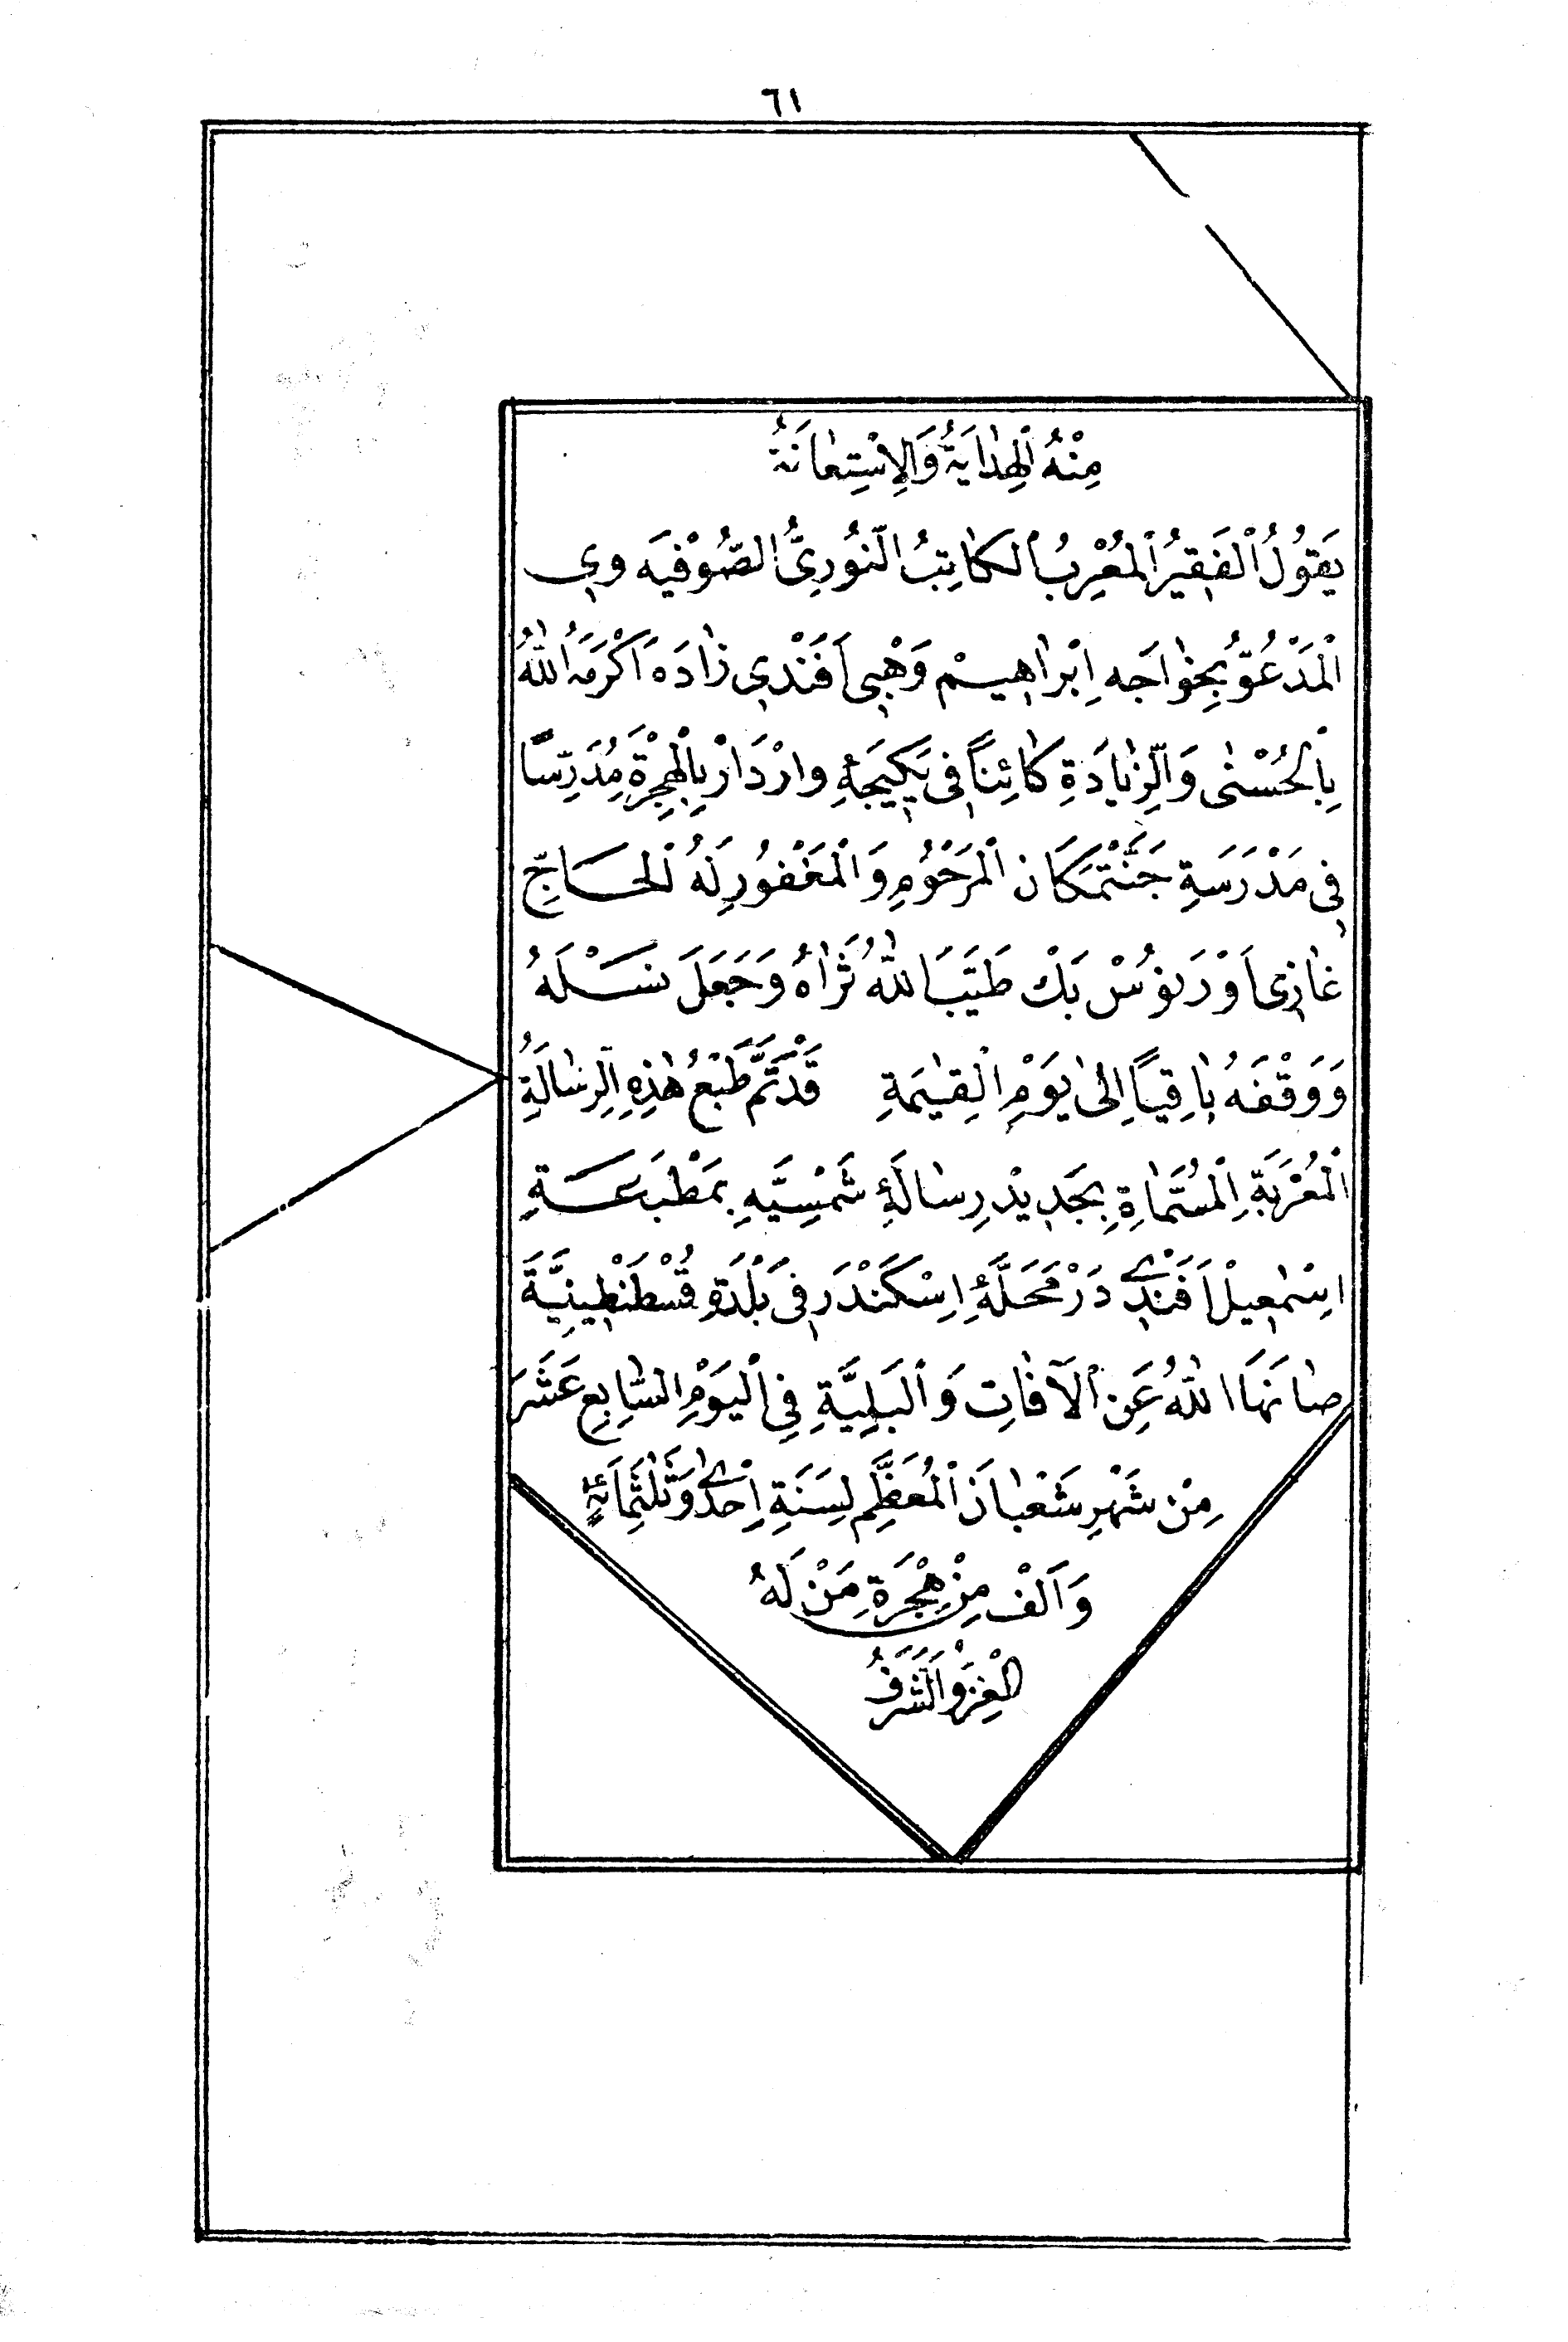 ٦١
مِنْهُ الْهِدَايَةُ وَالْاِسْتِعَانَةُ
يَقُولُ الْفَقِيرُ الْمُعْرِبُ الْكَاتِبُ النُّورِىُّ الصُّوْفِيَه وِي
الْمَدْعُوُّ بِخٰواجَه اِبْرَاهِيمْ وَهْبِى اَفَنْدِي زَادَه اَكْرَمَهُ اللّٰهُ
بِالْحُسْنٰى وَالزِّيَادَةِ كَائِنًا فِى يَكِيجَۀِ وَارْدَارْ بِالْهِجْرَةِ مُدَرِّسًا
فِى مَدْرَسَةِ جَنَّتْمَكَان الْمَرْحُوْمِ وَالْمَغْفُورِ لَهُ الْحَاجِّ
غَازِى اَوْرَنوُسْ بَكْ طَيَّبَ اللّٰهُ ثَرَاهُ وَجَعَلَ نَسْلَهُ
وَوَقْفَهُ بَاقِيًا اِلٰى يَوْمِ الْقِيٰمَةِ قَدْ تَمَّ طَبْعُ هٰذِهِ الرِّسَالَةِ
الْمُعْرَبَةِ الْمُسَمَّاةِ بِجَدِيدْ رِسَالَۀِ شَمْسِيَّهِ بِمَطْبَعَةِ
اِسْمٰعِيلْ اَفَنْدِي دَرْ مَحَلَّۀِ اِسْكَنْدَر فِى بَلْدَةِ قُسْطَنْطِينِيَّةَ
صَانَهَا اللّٰهُ عَنِ الْآفَاتِ وَالْبَلِيَّةِ فِى الْيَوْمِ السَّابِعِ عَشَرَ
مِنْ شَهْرِ شَعْبَانَ الْمُعَظَّمِ لِسَنَةِ اِحْدٰي وَثَلٰثِمِائَةٍ
وَاَلْفٍ مِنْ هِجْرَةِ مَنْ لَهُ
الْعِزُّ وَالشَّرَفُ